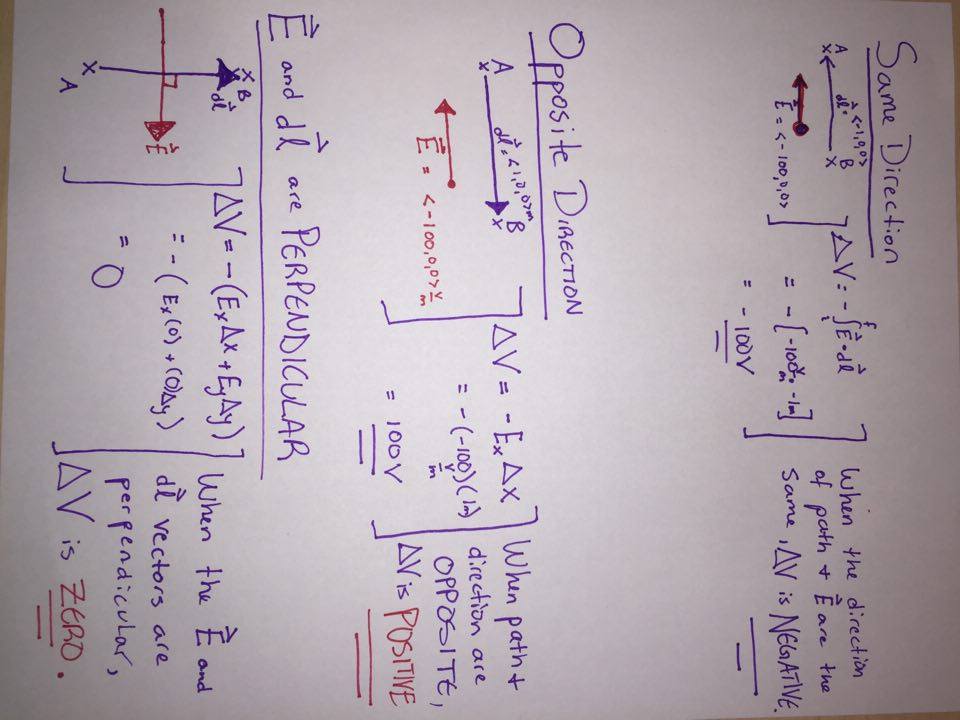 Same Direction
A B
x x
dl⃗: <-1,0,0>
E⃗ = <-100,0,0>
ΔV = -∫ᵢᶠ E⃗ • dl⃗
= -[-100 V/m • -1m]
= -100V
When the direction
of path + E⃗ are the
same, ΔV is NEGATIVE.
OPPOSITE DIRECTION
A B
x x
dl⃗ = <1,0,0>m
E⃗ = <-100,0,0> V/m
ΔV = -EₓΔx
= -(-100 V/m)(1m)
= 100V
When path +
direction are
OPPOSITE,
ΔV is POSITIVE
E⃗ and dl⃗ are PERPENDICULAR
x B
dl⃗
x
A
E⃗
ΔV = -(EₓΔx + EyΔy)
= -(Eₓ(0) + (0)Δy)
= 0
When the E⃗ and
dl⃗ vectors are
perpendicular,
ΔV is ZERO.